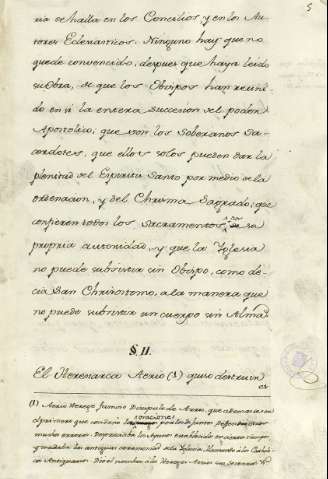 5
ria se halla en los Concilios, y en los Au-
tores Eclesiasticos. Ninguno hay que no
quede convencido, despues que haya leido
su Obra, de que los Obispos han reuni-
do en si la entera succesion del poder
Apostolico; que son los Soberanos Sa-
cerdotes, que ellos solos pueden dar la
plenitud del Espiritu Santo por medio de la
ordenacion, y del Chrisma Sagrado; que
confieren todos los Sacramentos de su
propria autoridad, y que la Iglesia
no puede subsistir sin Obispo, como de-
cia San Chrisostomo, a la manera que
no puede subsistir un cuerpo sin Alma.
§. II.
El Heresiarca Aerio (1) quiso destruir
(1) Aerio Herege famoso Discipulo de Arrio, que
oraciones
mucho errores.
y las antiguas ceremonias de la Iglesia, llamando a los
Antiquarios. Dio el nombre a los Hereges